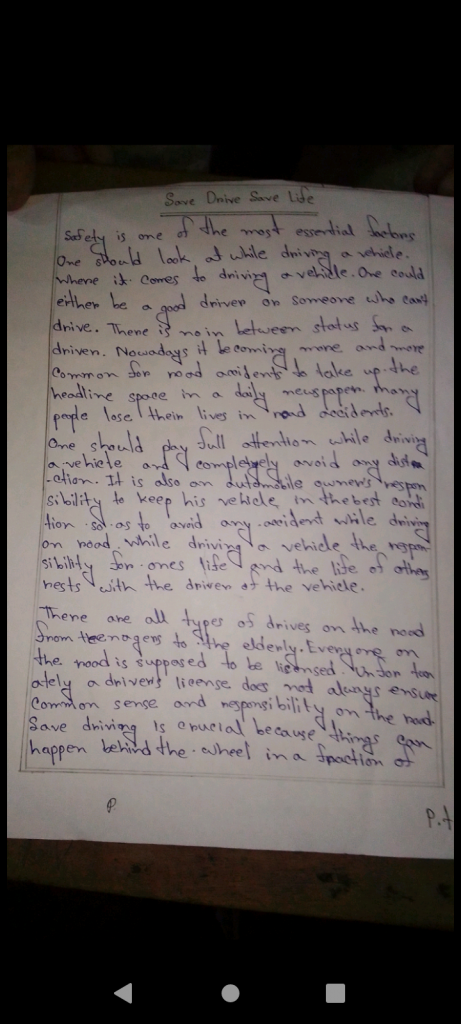 Save Drive Save Life
Safety is one of the most essential factors
One should look at while driving a vehicle.
where it comes to driving a vehicle. One could
either be a good driver or someone who can't
drive. There is no in between status for a
driven. Nowadays it becoming more and more
common for road accidents to take up the
headline space in a daily newspaper. many
people lose their lives in road accidents.
One should pay full attention while driving
a vehicle and completely avoid any distra
-ction. It is also an automobile owner's respon
sibility to keep his vehicle, in the best condi
tion so as to avoid any accident while driving
on road. While driving a vehicle the respon
sibility for ones life and the life of others
rests with the driver of the vehicle.
There are all types of drives on the road
from teenagers to the elderly. Everyone on
the road is supposed to be licensed. Unfor tun
ately a driver's license does not always ensure
Common sense and responsibility on the road.
Save driving is crucial because things can
happen behind the wheel in a fraction of
P.
P.t